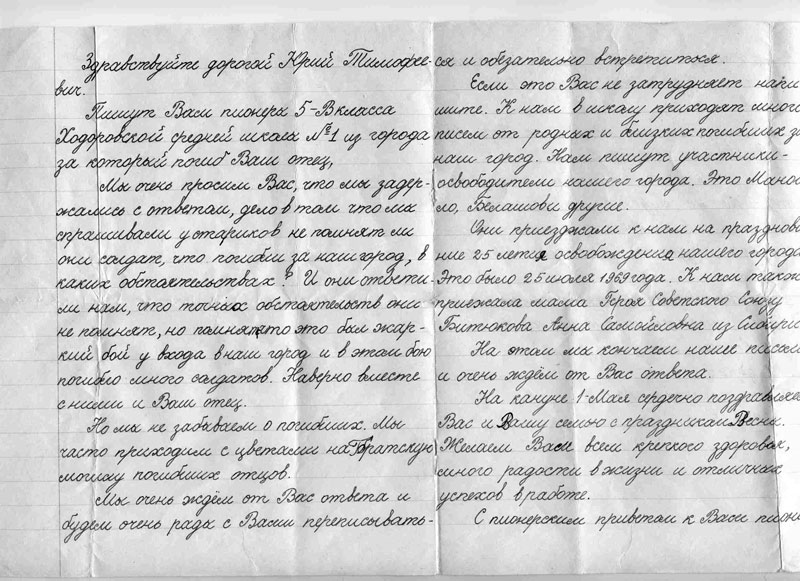 Здравствуйте дорогой Юрий Тимофее-
вич.
Пишут Вам пионеры 5-В класса
Ходоровской средней школы №1 из города
за который погиб Ваш отец,
Мы очень просим Вас, что мы задер-
жались с ответом, дело в том что мы
спрашивали у стариков не помнят ли
они солдат, что погибли за наш город, в
каких обстоятельствах? И они ответи-
ли нам, что точных обстоятельств они
не помнят, но помнят, что это был жар-
кий бой у входа в наш город и в этом бою
погибло много солдатов. Наверно вместе
с ними и Ваш отец.
Но мы не забываем о погибших. Мы
часто приходим с цветами на Братскую
могилу погибших отцов.
Мы очень ждём от Вас ответа и
будем очень рады с Вами переписывать-
ся и обезательно встретиться.
Если это Вас не затрудняет напи
шите. К нам в школу приходят много
писем от родных и близких погибших за
наш город. Нам пишут участники-
освободители нашего города. Это Мано
ло, Белашов и другие.
Они приезжали к нам на празднова
ние 25 летия освобождения нашего города
Это было 25 июля 1969 года. К нам также
приезжала мама Героя Советского Союзу
Битюкова Анна Самойловна из Сибири
На этом мы кончаем наше письмо
и очень ждём от Вас ответа.
На кануне 1-Мая сердечно поздравляем
Вас и Вашу семью с праздником Весни.
Желаем Вам всем крепкого здоровья,
много радости в жизни и отличных
успехов в работе.
С пионерским приветом к Вам пионе